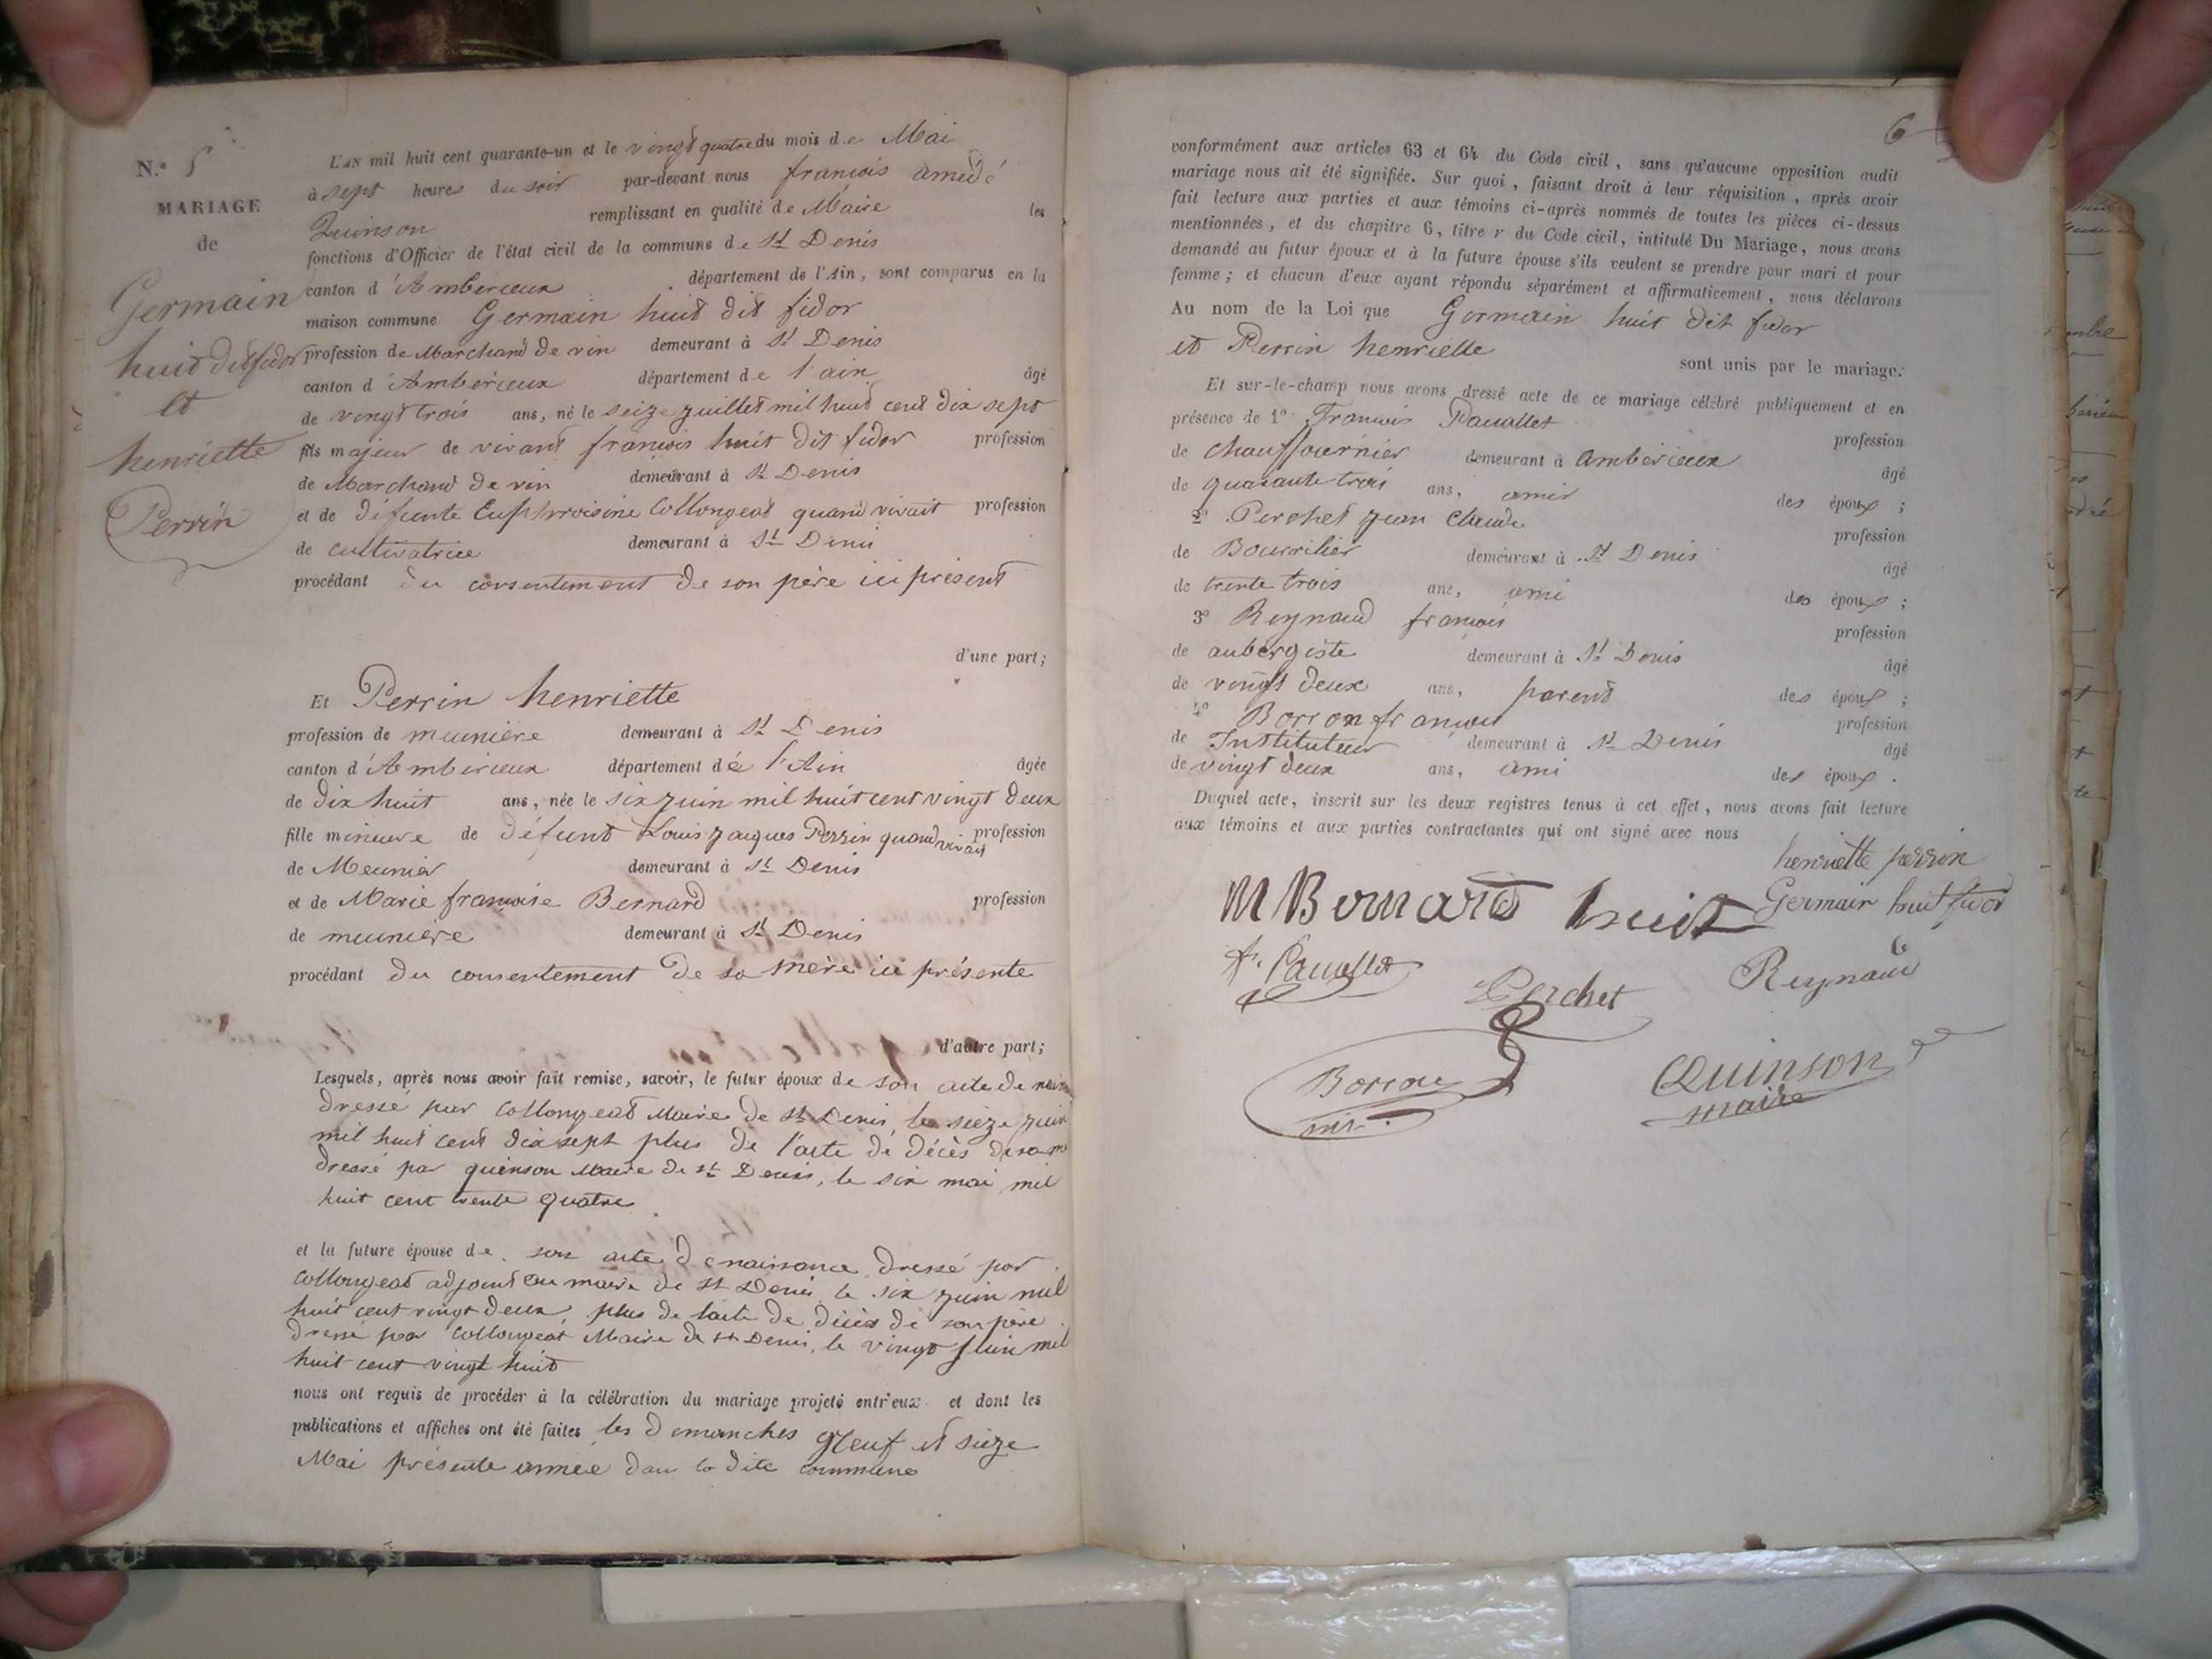 N.o 5
MARIAGE
de
Germain
huit dit fidor
et
henriette
Perrin
L'AN mil huit cent quarante-un et le vingt quatre du mois de Mai
à sept heures du soir par-devant nous francois amédé
Quinson remplissant en qualité de Maire les
fonctions d'Officier de l'état civil de la commune de St Denis
canton d'Ambérieux département de l'Ain, sont comparus en la
maison commune Germain huit dit fidor
profession de Marchand de vin demeurant à St Denis
canton d'Ambérieux département de l'ain âgé
de vingt trois ans, né le seize juillet mil huit cent dix sept
fils majeur de vivant francois huit dit fidor profession
de Marchand de vin demeurant à St Denis
et de défunte Euphroisine Collongeat quand vivait profession
de cultivatrice demeurant à St Denis
procédant du consentement de son père ici présent
d'une part;
Et Perrin henriette
profession de meunière demeurant à St Denis
canton d'Ambérieux département de l'Ain âgée
de dix huit ans, née le six juin mil huit cent vingt deux
fille mineure de défunt Louis jacques Perrin quand vivait profession
de Meunier demeurant à St Denis
et de Marie francoise Bernard profession
de meunière demeurant à St Denis
procédant du consentement de sa mère ici présente
d'autre part;
Lesquels, après nous avoir fait remise, savoir, le futur époux de son acte de
dressé par Collongeat Maire de St Denis, le seize juin
mil huit cent dix sept plus de l'acte de décès de sa
dressé par quinson Maire de St Denis, le six mai mil
huit cent trente quatre
et la future épouse de son acte de naissance dressé par
Collongeat adjoint au maire de St Denis le six juin mil
huit cent vingt deux, plus de l'acte de décès de son père
dressé par Collongeat Maire de St Denis, le vingt juin mil
huit cent vingt huit
nous ont requis de procéder à la célébration du mariage projeté entr'eux et dont les
publications et affiches ont été faites les dimanches neuf et seize
Mai présente année dans la dite commune
6
conformément aux articles 63 et 64 du Code civil, sans qu'aucune opposition audit
mariage nous ait été signifiée. Sur quoi, faisant droit à leur réquisition, après avoir
fait lecture aux parties et aux témoins ci-après nommés de toutes les pièces ci-dessus
mentionnées, et du chapitre 6, titre v du Code civil, intitulé Du Mariage, nous avons
demandé au futur époux et à la future épouse s'ils veulent se prendre pour mari et pour
femme; et chacun d'eux ayant répondu séparément et affirmativement, nous déclarons
Au nom de la Loi que Germain huit dit fidor
et Perrin henriette sont unis par le mariage.
Et sur-le-champ nous avons dressé acte de ce mariage célébré publiquement et en
présence de 1o Francois Pacallet profession
de chauffournier demeurant à Ambérieux âgé
de quarante trois ans, ami des époux;
2o Perchet jean Claude profession
de Bourrelier demeurant à St Denis âgé
de trente trois ans, ami des époux;
3o Reynaud francois profession
de aubergiste demeurant à St Denis âgé
de vingt deux ans, parent des époux;
4o Borron francois profession
de Instituteur demeurant à St Denis âgé
de vingt deux ans, ami des époux.
Duquel acte, inscrit sur les deux registres tenus à cet effet, nous avons fait lecture
aux témoins et aux parties contractantes qui ont signé avec nous
henriette perrin
M Bernard huit Germain huit fidor
fs. Pacallet Perchet Reynaud
Borron Quinson
maire